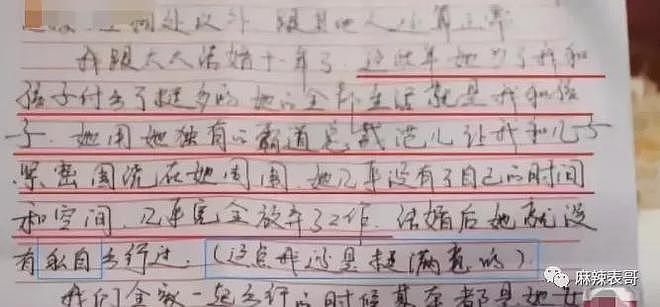 以外,跟其他人还算正常
我跟太太结婚十一年了,这些年她为了我和
孩子付出了挺多的,她的全部生活就是我和孩
子.她用她独有的霸道总裁范儿让我和儿子
紧密围绕在她周围,她几乎没有了自己的时间
和空间,几乎完全放弃了工作.结婚后她就没
有私自出行过.(这点我还是挺满意的).
我们全家一起出行的时候基本都是她
麻辣表哥